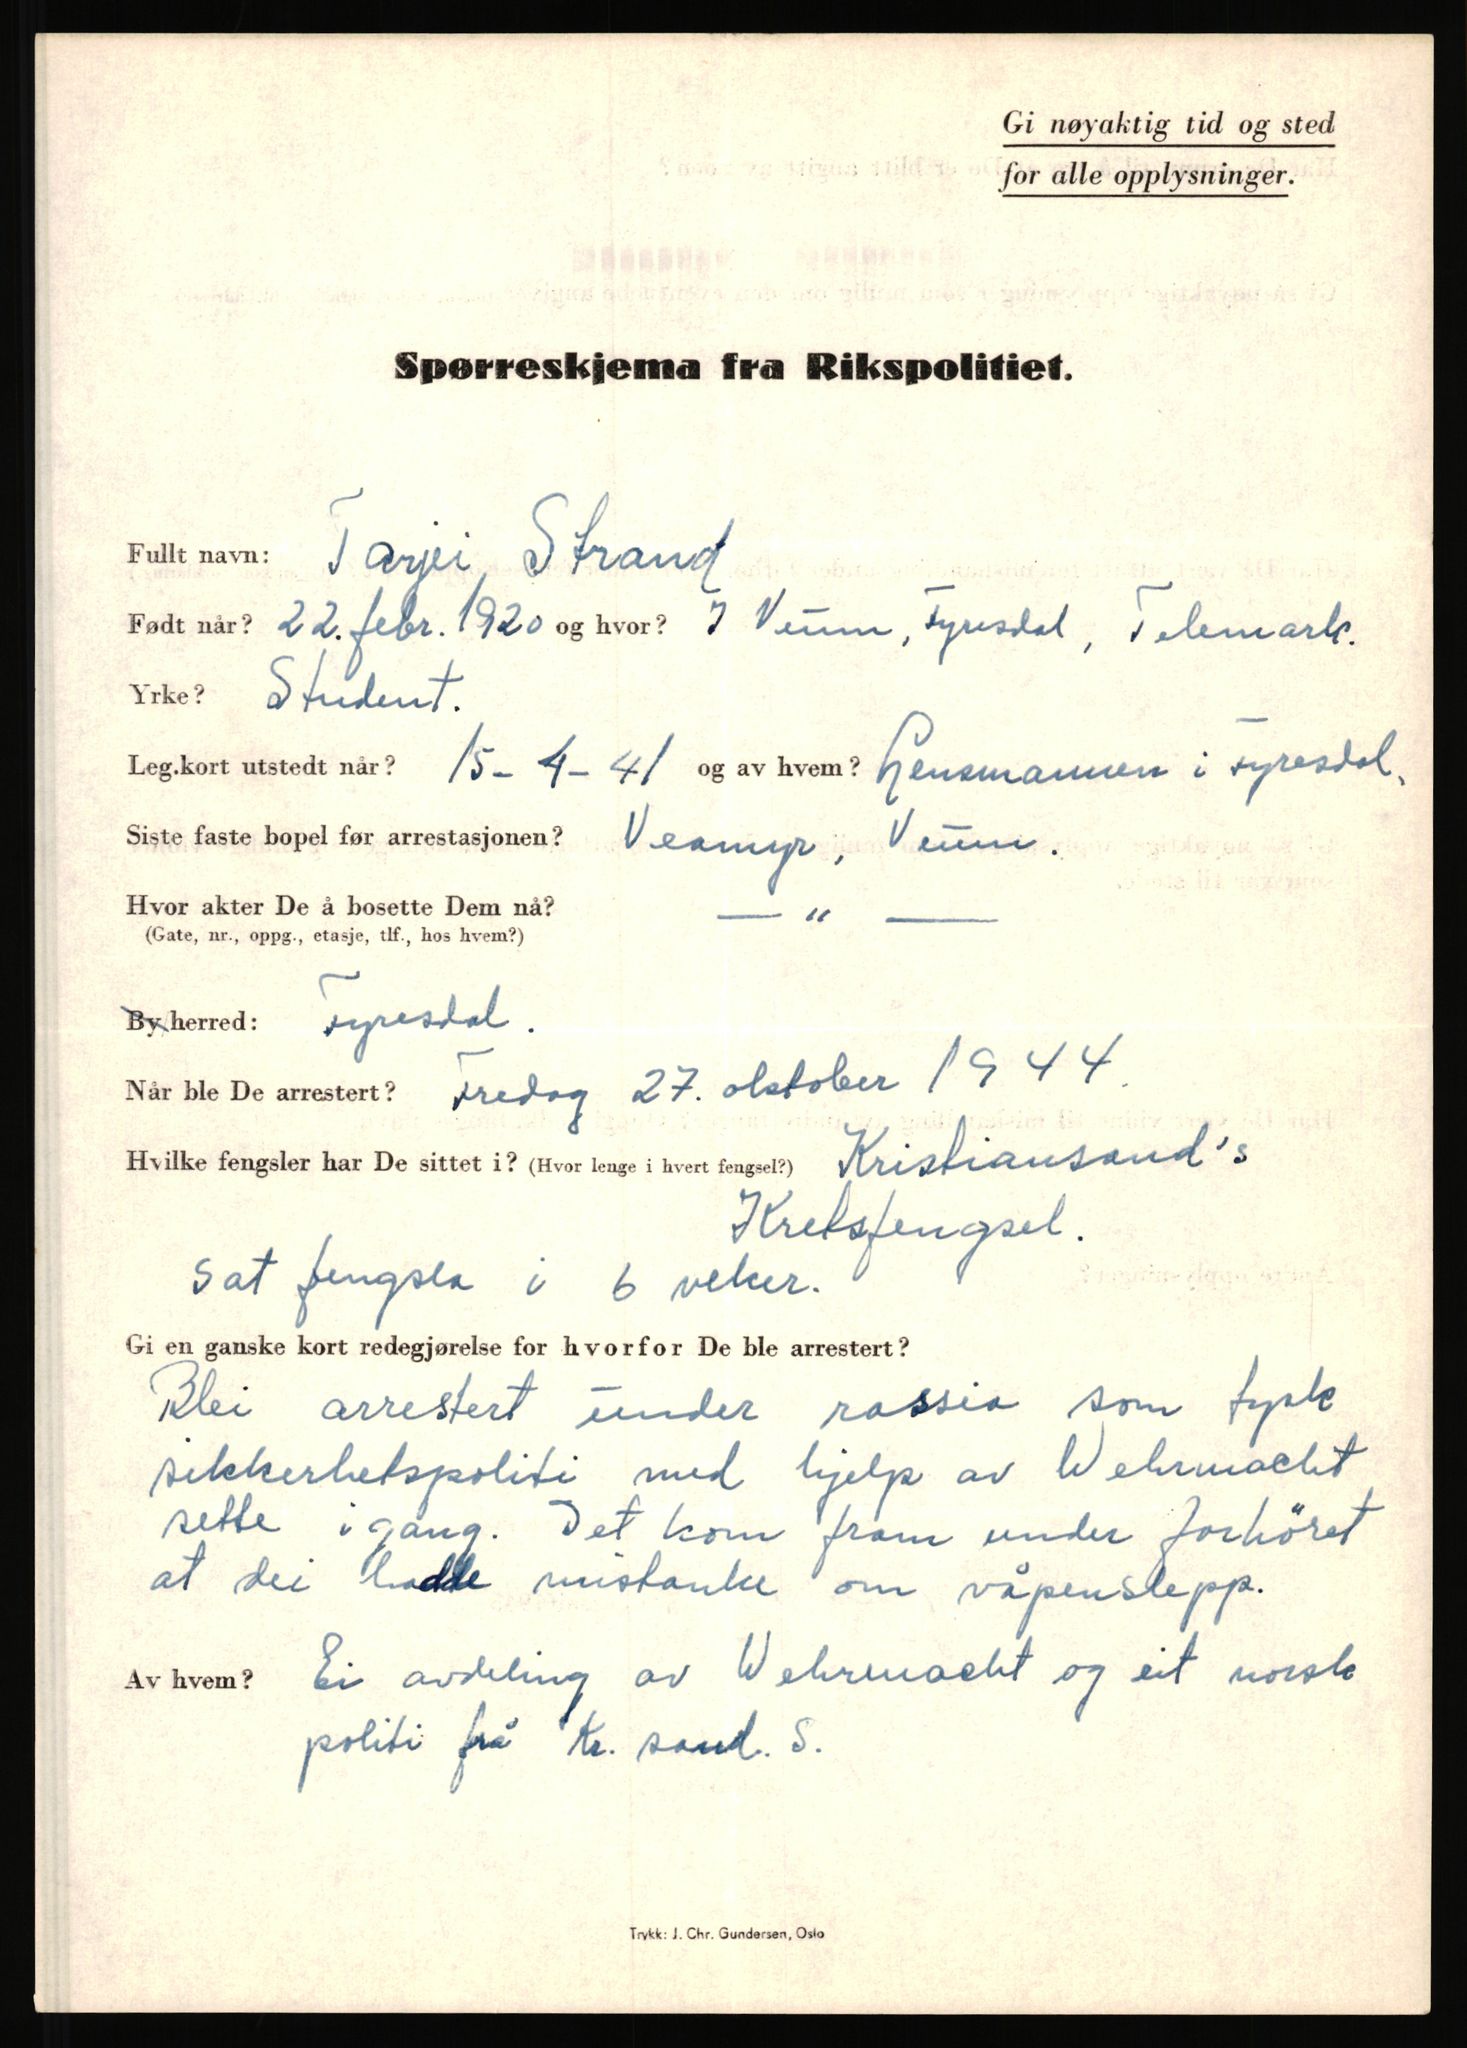 Gi nøyaktig tid og sted
for alle opplysninger.
Spørreskjema fra Rikspolitiet.
Fullt navn: Tarjei Strand
Født når? 22. febr. 1920 og hvor? I Veum, Fyresdal, Telemark.
Yrke? Student.
Leg.kort utstedt når? 15-4-41 og av hvem? Lensmannen i Fyresdal.
Siste faste bopel før arrestasjonen? Veamyr, Veum.
Hvor akter De å bosette Dem nå? — " —
(Gate, nr., oppg., etasje, tlf., hos hvem?)
By/herred: Fyresdal.
Når ble De arrestert? Fredag 27. oktober 1944.
Hvilke fengsler har De sittet i? (Hvor lenge i hvert fengsel?) Kristiansand's
Kretsfengsel.
Sat fengsla i 6 veker.
Gi en ganske kort redegjørelse for hvorfor De ble arrestert?
Blei arrestert under rassia som tysk
sikkerhetspoliti med hjelp av Wehrmacht
sette igang. Det kom fram under forhöret
at dei hadde mistanke om våpenslepp.
Av hvem? Ei avdeling av Wehrmacht og eit norsk
politi frå Kr. sand. S.
Trykk: J. Chr. Gundersen, Oslo